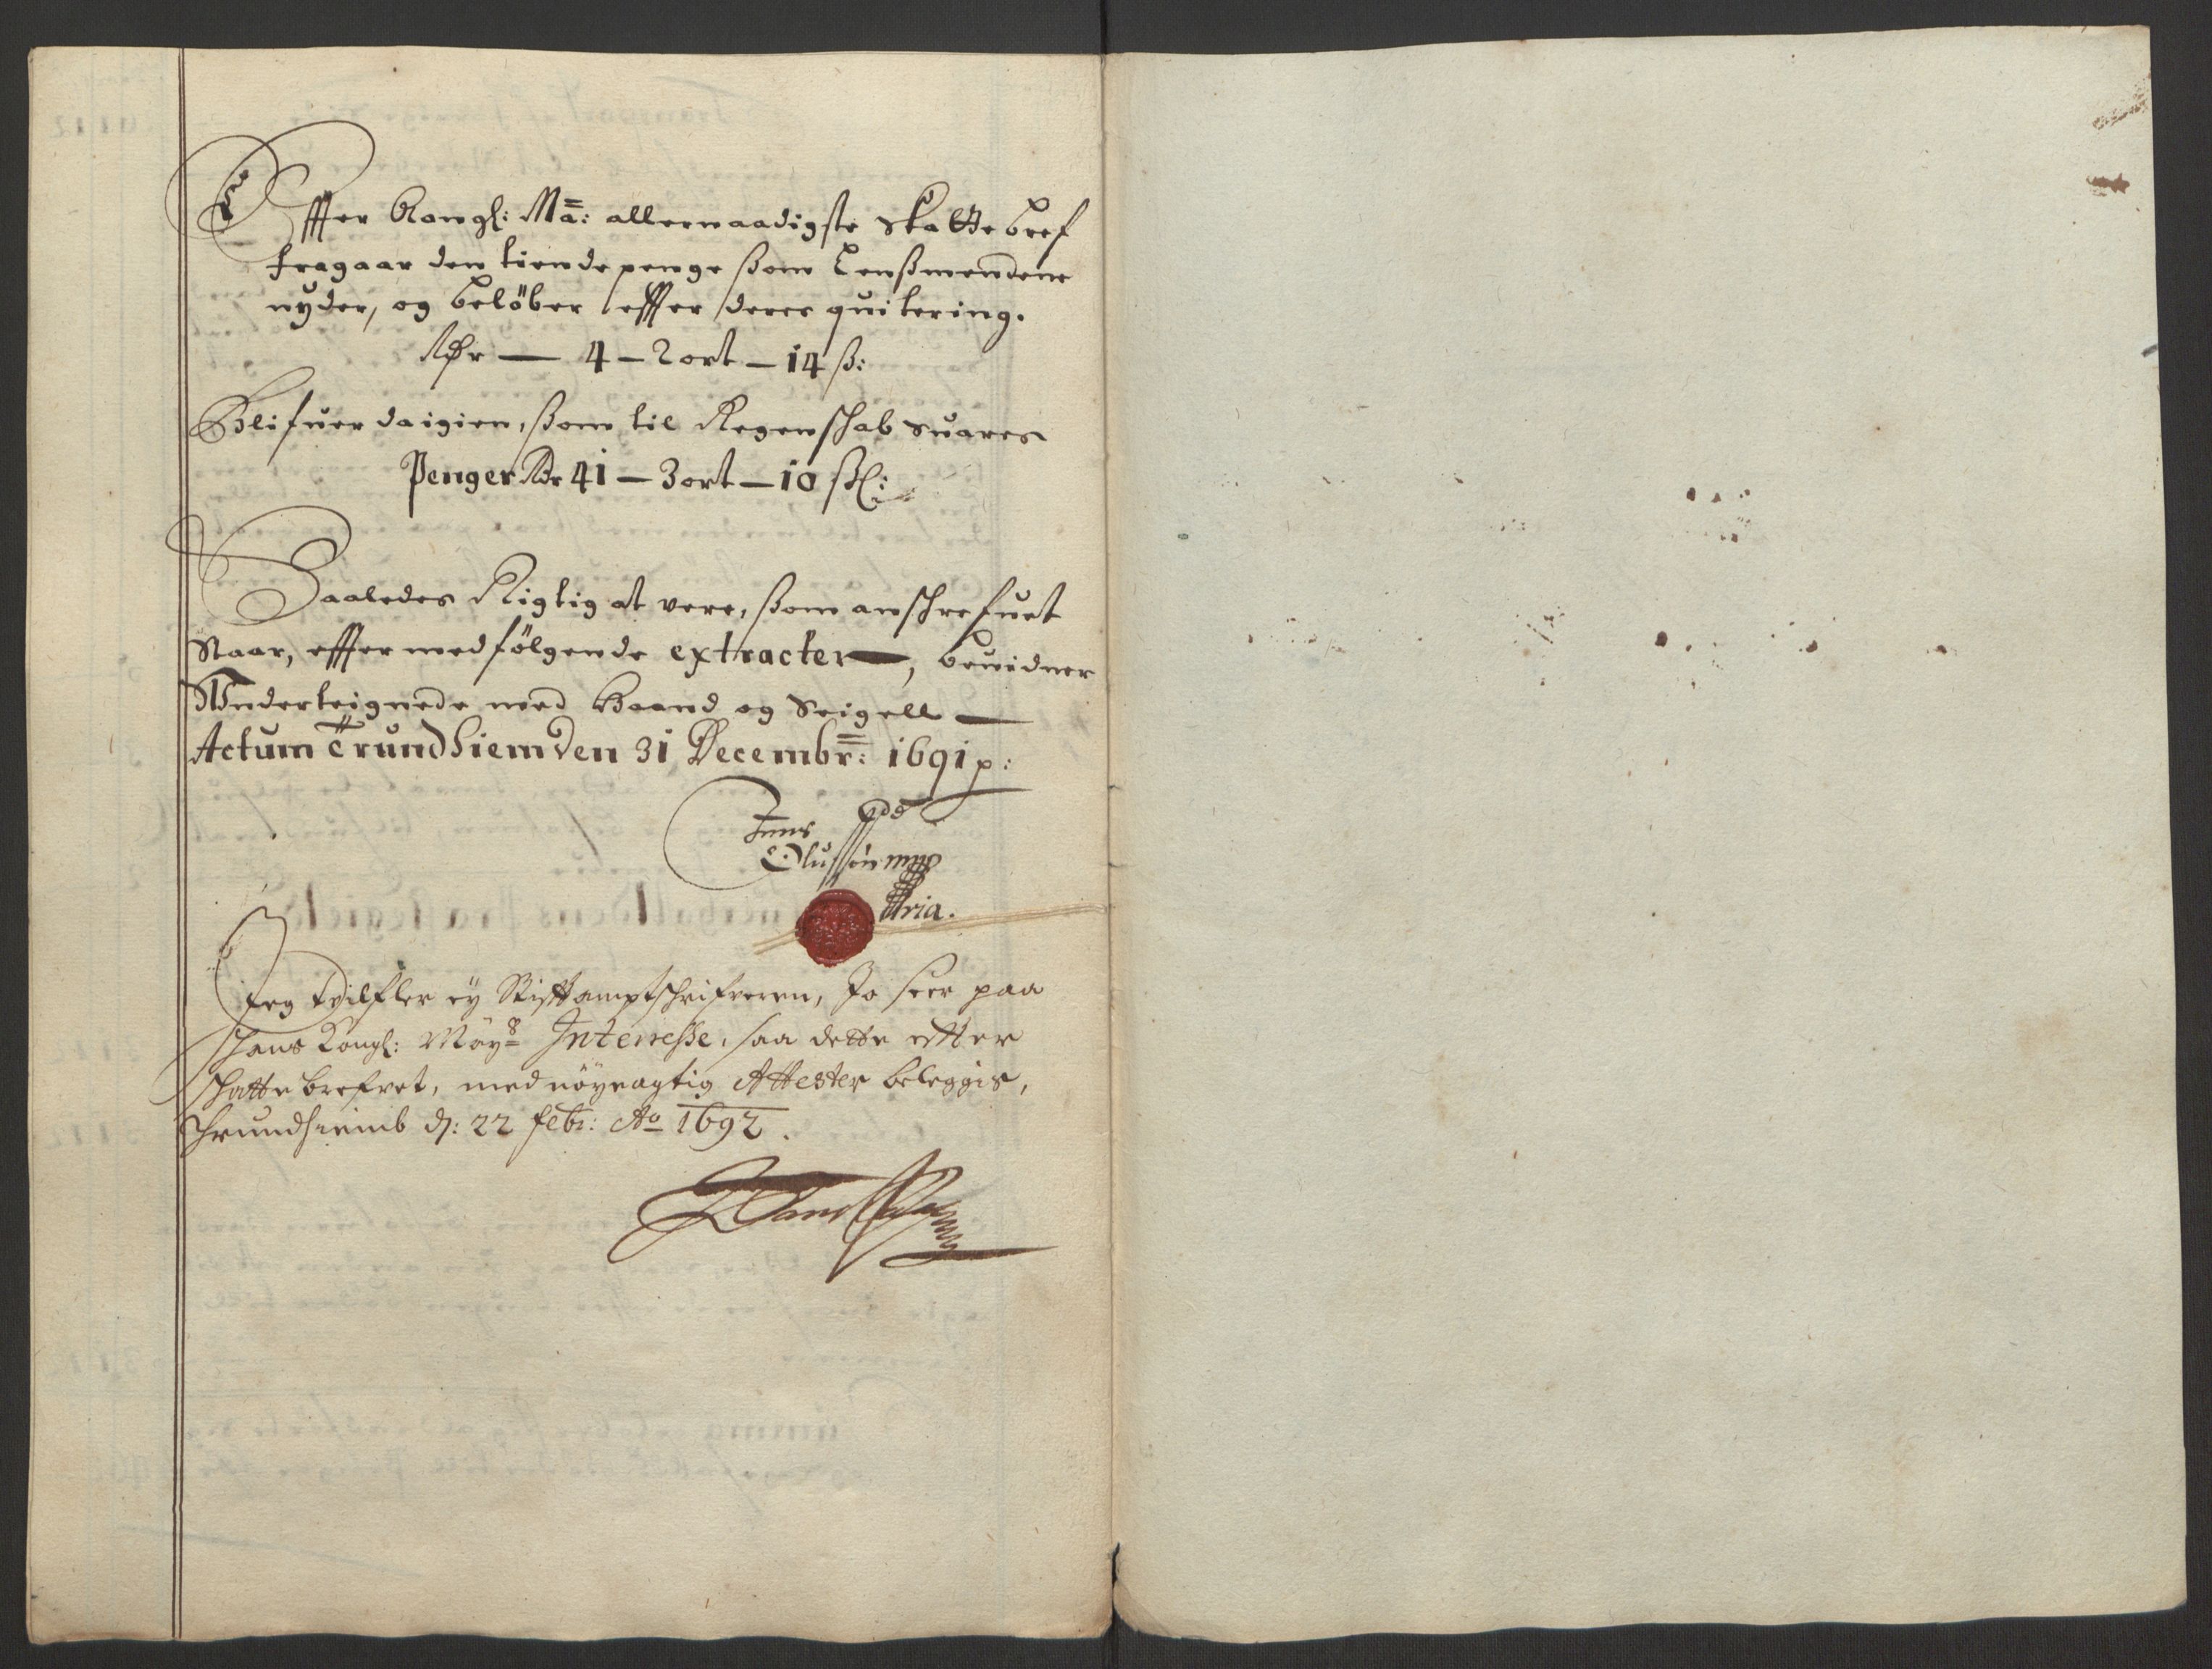 Effter Kongl: Ma: allernaadigste Skattebref
fragaar den tiende penge ßom Lenßmendene
nyder, og beløber effter deres quitering.
Rdr — 4 – 2 ort – 14 ß:
Blifuer da igien, ßom til Regenschab suares
Penger Rdr 41 – 3 ort – 10 ßl:
Saaledes Rigtig at vere, ßom anschrefuet
Staar, effter medfølgende extracter —, bevidner
Vnderteignede med Haand og Seigell —
Actum Trundhiem den 31 Decembr: 1691 p:
Jens
Olufsøn mpp
ria.
Jeg tvilfler ey Stifftamptschrifveren, Jo seer paa
hans Kongl: Mayts Interesse, saa dette efter
schatte brefvet, med nøyeagtig Attester beleggis,
Thrundhiemb d: 22 febr: Ao 1692.